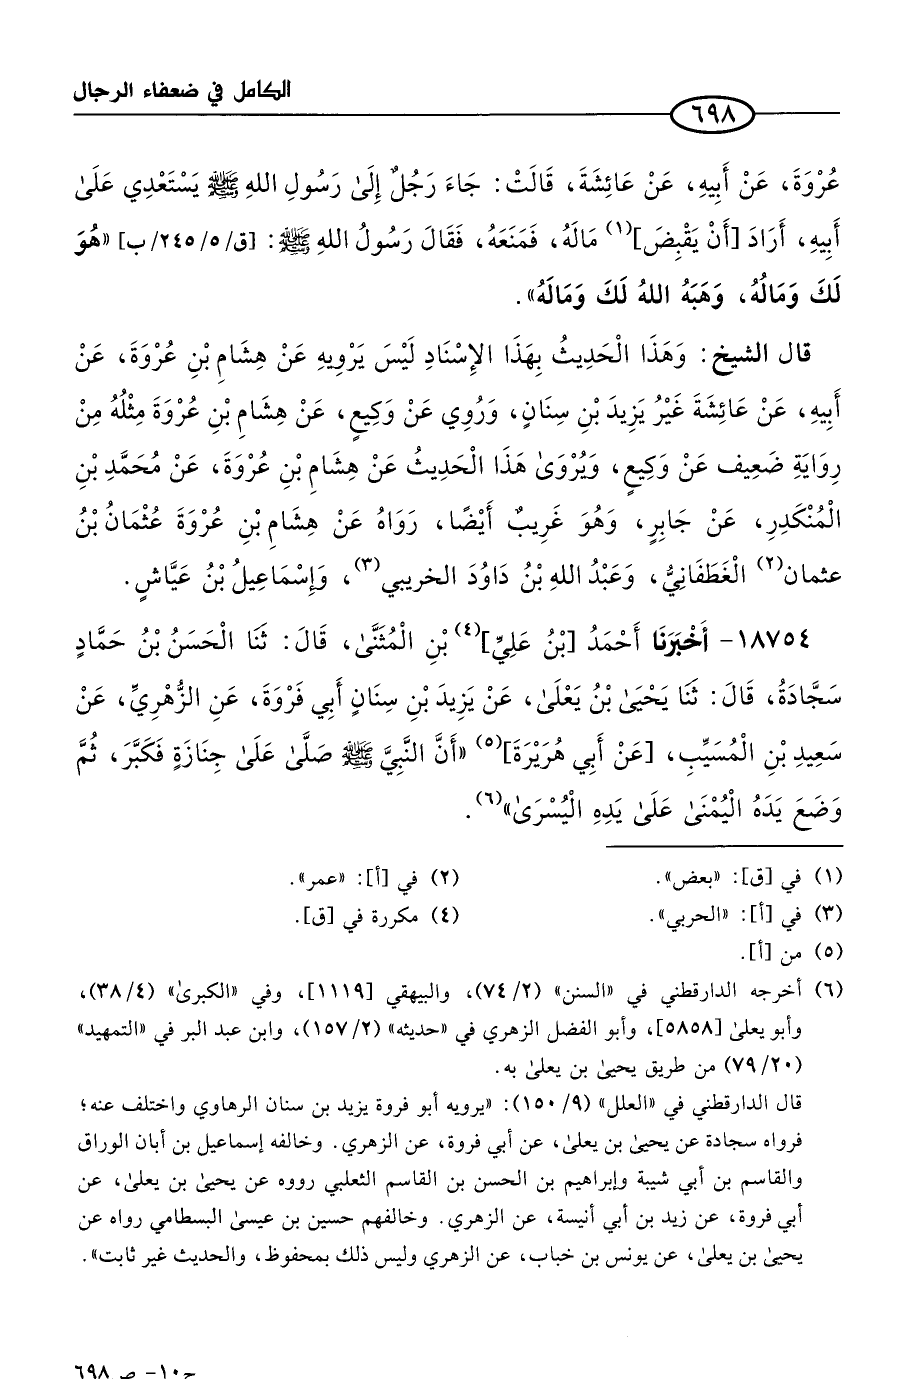 الكامل في ضعفاء الرجال
٦٩٨
عُرْوَةَ، عَنْ أَبِيهِ، عَنْ عَائِشَةَ، قَالَتْ: جَاءَ رَجُلٌ إِلَىٰ رَسُولِ اللهِ ﷺ يَسْتَعْدِي عَلَىٰ
أَبِيهِ، أَرَادَ [أَنْ يَقْبِضَ](١) مَالَهُ، فَمَنَعَهُ، فَقَالَ رَسُولُ اللهِ ﷺ: [ق/٢٤٥/٥/ب] «هُوَ
لَكَ وَمَالُهُ، وَهَبَهُ اللهُ لَكَ وَمَالَهُ».
قال الشيخ: وَهَذَا الْحَدِيثُ بِهَذَا الإِسْنَادِ لَيْسَ يَرْوِيهِ عَنْ هِشَامِ بْنِ عُرْوَةَ، عَنْ
أَبِيهِ، عَنْ عَائِشَةَ غَيْرُ يَزِيدَ بْنِ سِنَانٍ، وَرُوِي عَنْ وَكِيعٍ، عَنْ هِشَامِ بْنِ عُرْوَةَ مِثْلُهُ مِنْ
رِوَايَةِ ضَعِيف عَنْ وَكِيعٍ، وَيُرْوَىٰ هَذَا الْحَدِيثُ عَنْ هِشَامِ بْنِ عُرْوَةَ، عَنْ مُحَمَّدِ بْنِ
الْمُنْكَدِرِ، عَنْ جَابِرٍ، وَهُوَ غَرِيبٌ أَيْضًا، رَوَاهُ عَنْ هِشَامِ بْنِ عُرْوَةَ عُثْمَانُ بْنُ
عثمان(٢) الْغَطَفَانِيُّ، وَعَبْدُ اللهِ بْنُ دَاوُدَ الخريبي(٣)، وَإِسْمَاعِيلُ بْنُ عَيَّاشٍ.
١٨٧٥٤- أَخْبَرَنَا أَحْمَدُ [بْنُ عَلِيِّ](٤) بْنِ الْمُثَنَّىٰ، قَالَ: ثَنَا الْحَسَنُ بْنُ حَمَّادٍ
سَجَّادَةُ، قَالَ: ثَنَا يَحْيَىٰ بْنُ يَعْلَىٰ، عَنْ يَزِيدَ بْنِ سِنَانٍ أَبِي فَرْوَةَ، عَنِ الزُّهْرِيِّ، عَنْ
سَعِيدِ بْنِ الْمُسَيِّبِ، [عَنْ أَبِي هُرَيْرَةَ](٥) «أَنَّ النَّبِيَّ ﷺ صَلَّىٰ عَلَىٰ جِنَازَةٍ فَكَبَّرَ، ثُمَّ
وَضَعَ يَدَهُ الْيُمْنَىٰ عَلَىٰ يَدِهِ الْيُسْرَىٰ»(٦).
(١) في [ق]: «بعض».
(٢) في [أ]: «عمر».
(٣) في [أ]: «الحربي».
(٤) مكررة في [ق].
(٥) من [أ].
(٦) أخرجه الدارقطني في «السنن» (٧٤/٢)، والبيهقي [١١١٩]، وفي «الكبرىٰ» (٣٨/٤)،
وأبو يعلىٰ [٥٨٥٨]، وأبو الفضل الزهري في «حديثه» (١٥٧/٢)، وابن عبد البر في «التمهيد»
(٧٩/٢٠) من طريق يحيىٰ بن يعلىٰ به.
قال الدارقطني في «العلل» (١٥٠/٩): «يرويه أبو فروة يزيد بن سنان الرهاوي واختلف عنه؛
فرواه سجادة عن يحيىٰ بن يعلىٰ، عن أبي فروة، عن الزهري. وخالفه إسماعيل بن أبان الوراق
والقاسم بن أبي شيبة وإبراهيم بن الحسن بن القاسم الثعلبي رووه عن يحيىٰ بن يعلىٰ، عن
أبي فروة، عن زيد بن أبي أنيسة، عن الزهري. وخالفهم حسين بن عيسىٰ البسطامي رواه عن
يحيىٰ بن يعلىٰ، عن يونس بن خباب، عن الزهري وليس ذلك بمحفوظ، والحديث غير ثابت».
ج١٠- ص٦٩٨